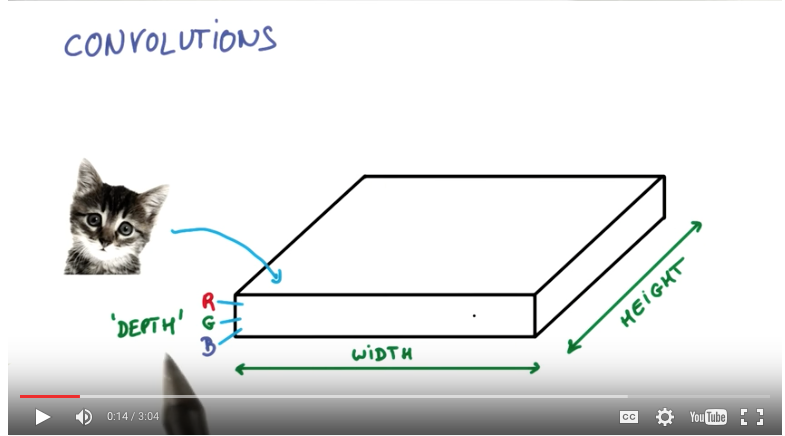 CONVOLUTIONS
R
'DEPTH' G
B
WIDTH
HEIGHT
0:14 / 3:04
CC
YouTube